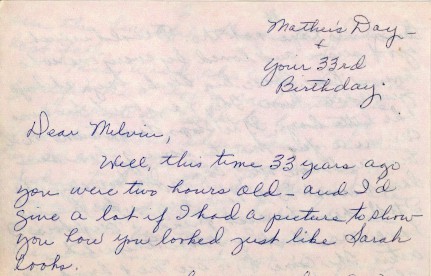 Mother's Day –
+
Your 33rd
Birthday.
Dear Melvin,
Well, this time 33 years ago
you were two hours old – and I'd
give a lot if I had a picture to show
you how you looked just like Sarah
looks.